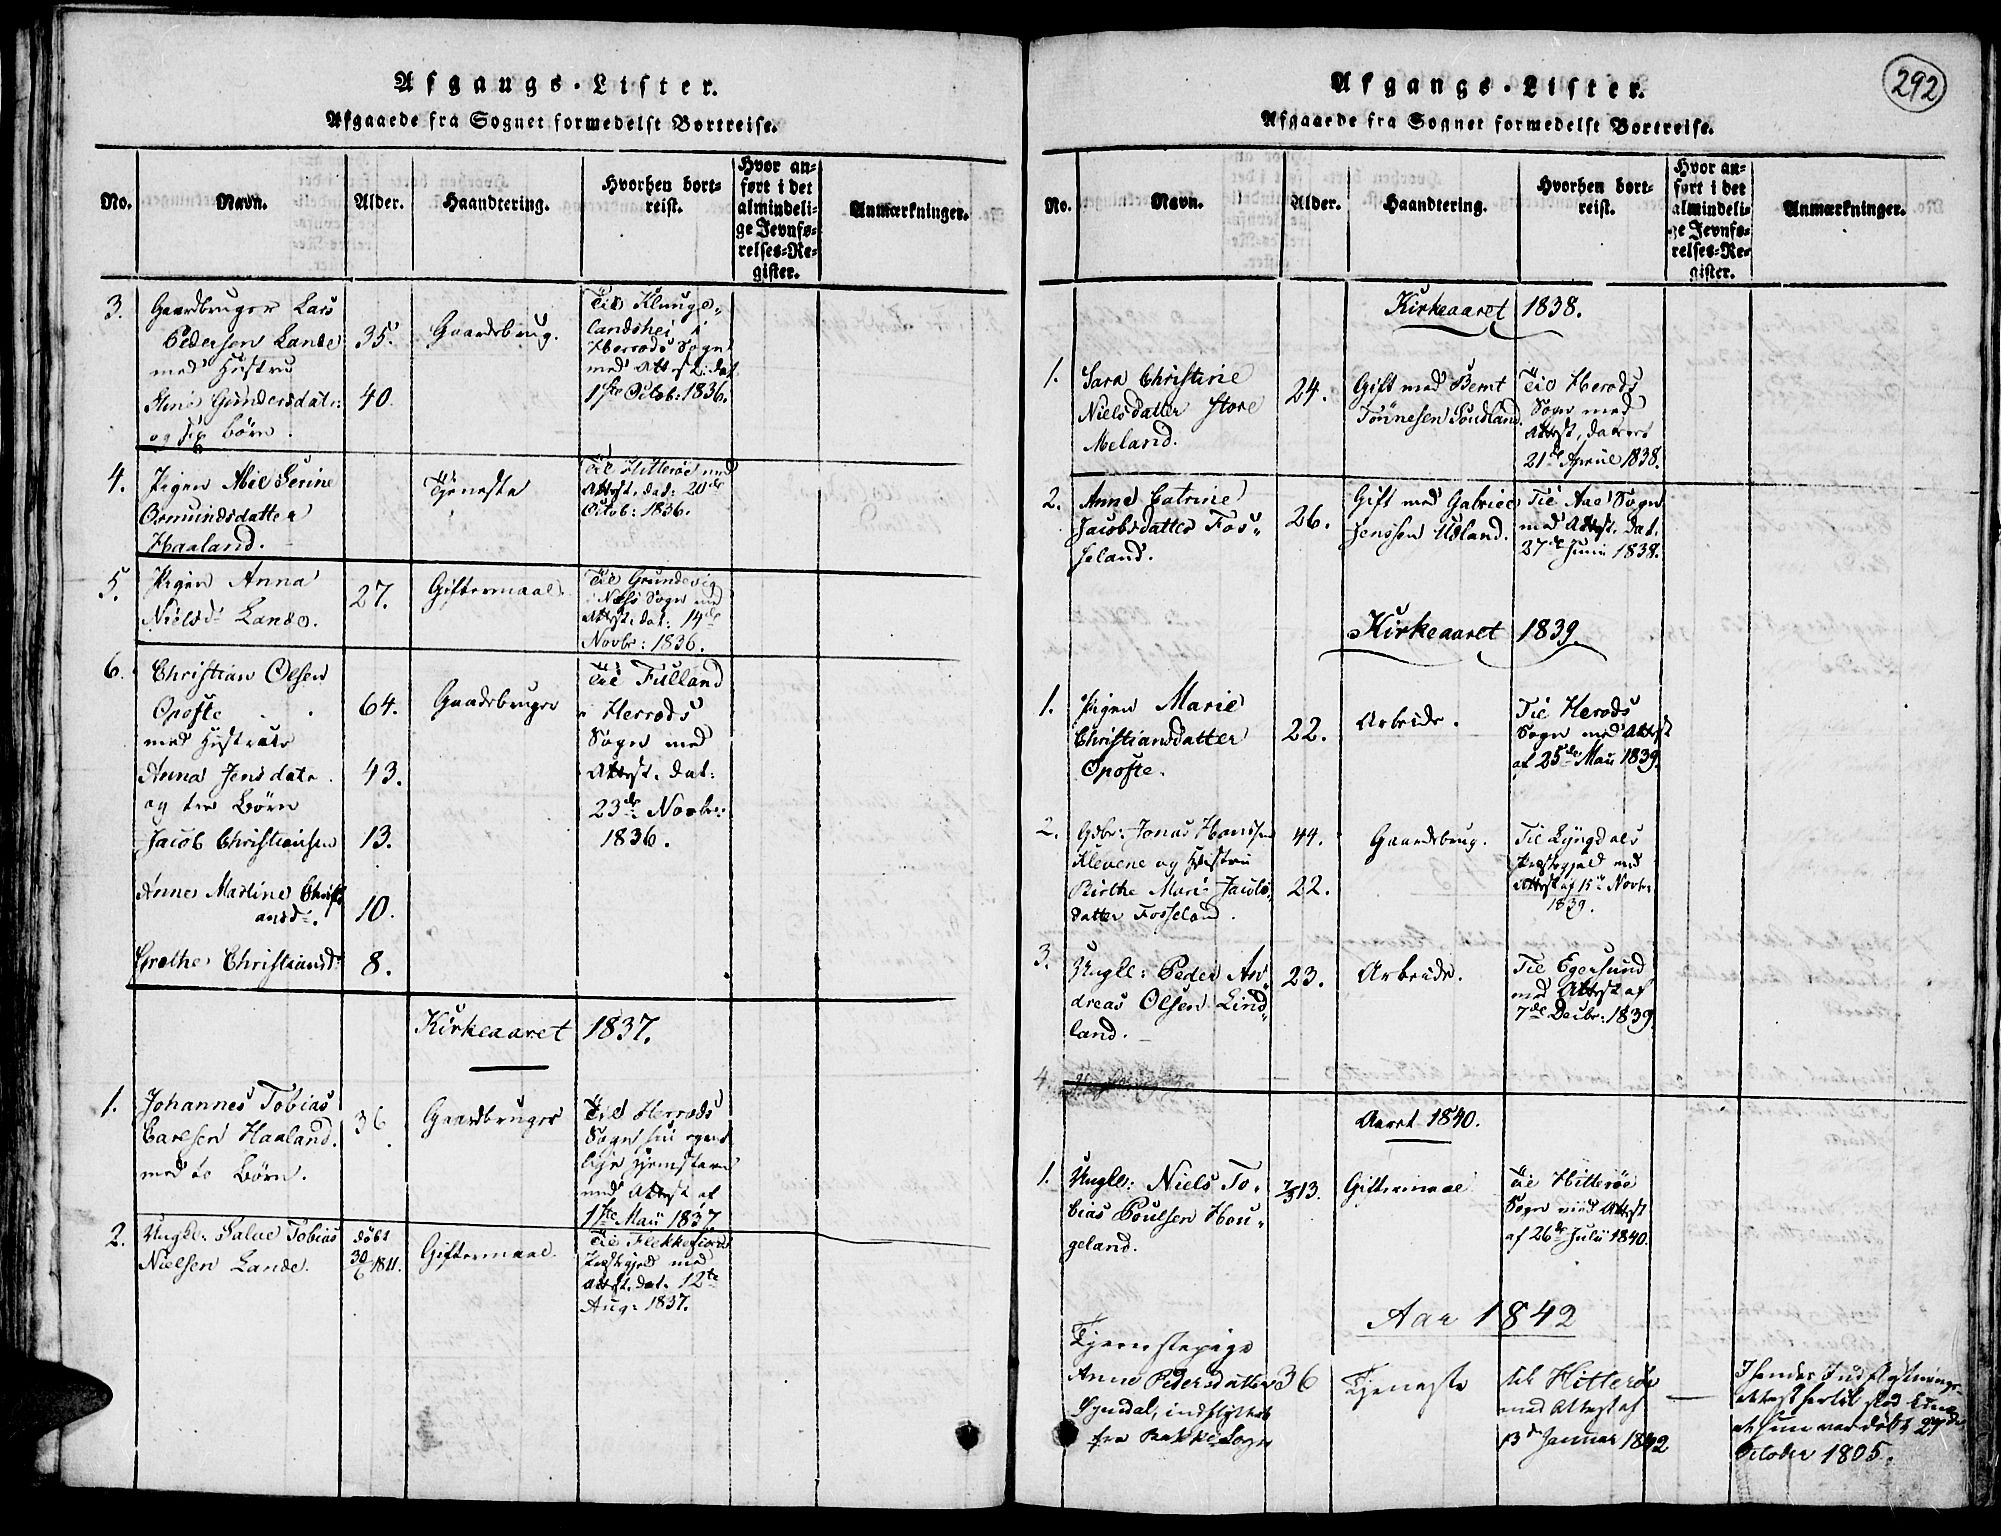 Afgangs-Lister.
Afgaaede fra Sognet formedelst Bortreise.
No.
Navn.
Alder.
Haandtering.
Hvorhen bort-
reist.
Hvor an-
ført i det
almindeli-
ge Jevnfø-
relses-Re-
gister.
Anmærkninger.
3.
Gaardbruger Lars
Pedersen Lande
med Hustru
Gundersdatr:
og sex Børn.
35.
40.
Gaardsbrug.
Til Klunge-
landshei i
Herrods Sogn
med Attest dat
1ste Octob: 1836.
4.
Pigen Abel Serine
Osmundsdatter
Haaland.
Tjeneste
Til Hitterøe med
Attest. dat: 20de
Octob: 1836.
5.
Pigen Anna
Nielsd: Lande.
27.
Giftermaal.
Til Grundevig
i Næss Sogn med
Attest. dat: 14de
Novbr: 1836.
6.
Christian Olsen
Opofte
med Hustrue
Anna Jensdatr.
og tre Børn
Jacob Christiansen
Anne Martine Christi
ansd:.
Grethe Christiansd:
64.
43.
13.
10.
8.
Gaardbruger
Til Fulland
i Herrods
Sogn med
Attest. dat:
23de Novbr:
1836.
Kirkeaaret 1837.
1.
Johannes Tobias
Carlsen Haaland.
med to Børn.
36.
Gaardbruger
Til Herrods
Sogn
med Attest af
1ste Maii 1837.
2.
Ungkl: Salve Tobias
Nielsen Lande.
døbt
30/6 1811.
Giftermaal.
Til Flekkefiord
Præstegjeld med
Attest. dat. 12te
Aug: 1837.
Afgangs-Lister.
292
Afgaaede fra Sognet formedelst Bortreise.
No.
Navn.
Alder.
Haandtering.
Hvorhen bort-
reist.
Hvor an-
ført i det
almindeli-
ge Jevnfø-
relses-Re-
gister.
Anmærkninger.
Kirkeaaret 1838.
1.
Sara Christine
Nielsdatter Store
Meland.
24.
Gift med Bernt
Tønnesen Soudland.
Til Herods
Sogn med
Attest, dateret
21de Apriil 1838.
2.
Anne Catrine
Jacobsdatter Fos-
seland.
26.
Gift med Gabriel
Jenssen Udland.
Til Aae Sogn
med Attest. dat.
27de Junii 1838.
Kirkeaaret 1839.
1.
Pigen Marie
Christiansdatter
Opofte.
22.
Arbeide.
Til Herods
Sogn med Attest
af 25de Maii 1839.
2.
Gdbr: Jonas Hanssen
Klevene og Hustru
Birthe Marie Jacobs-
datter Fosseland.
44.
22.
Gaardsbrug.
Til Lyngdals
Præstegjeld med
Attest af 15de Novbr.
1839.
3.
Ungkl: Peder An-
dreas Olsen Lind-
land.
23.
Arbeide.
Til Egersund
med Attest af
7de Decbr: 1839.
4.
Aaret 1840.
1.
Ungkl: Niels To-
bias Poulsen Hou-
geland.
7/3 13.
Giftermaal
Til Hitterøe
Sogn med Attest
af 26de Julii 1840.
Aar 1842
Tjenestepige
Anne Pedersdatter
Gyndal, indflyttet
fra Bakke Sogn
36
Tjeneste
til Hitterøe
med Attest af
13de Januar 1842
I hendes Indflytnings-
Attest hertil stod kun
at hun var døbt 27de
October 1805.